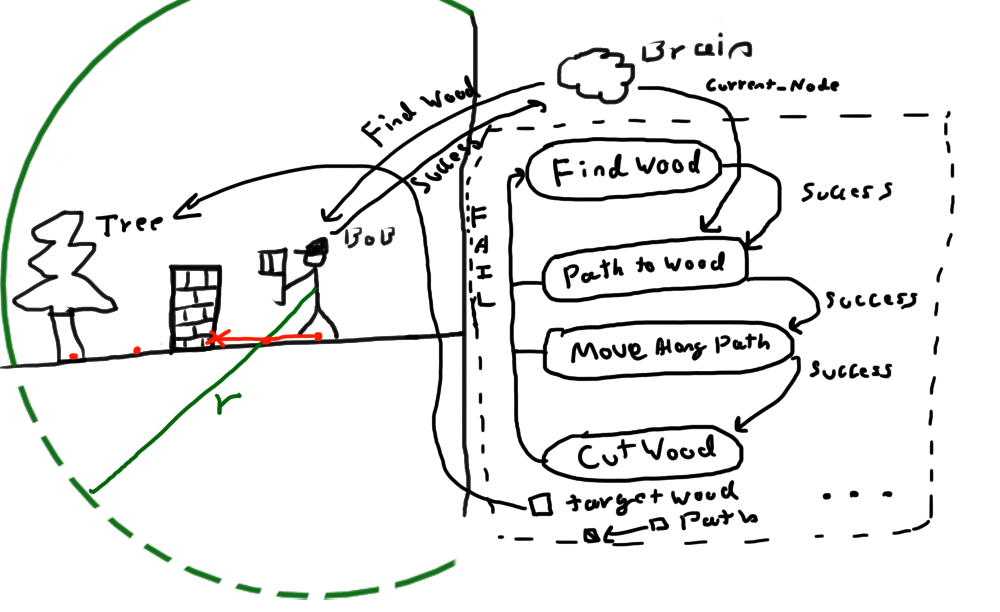 Brain
Current_Node
Find Wood
Success
Tree
BOB
r
FAIL
Find Wood
Success
Path to Wood
Success
Move Along Path
Success
Cut Wood
target wood
...
Path